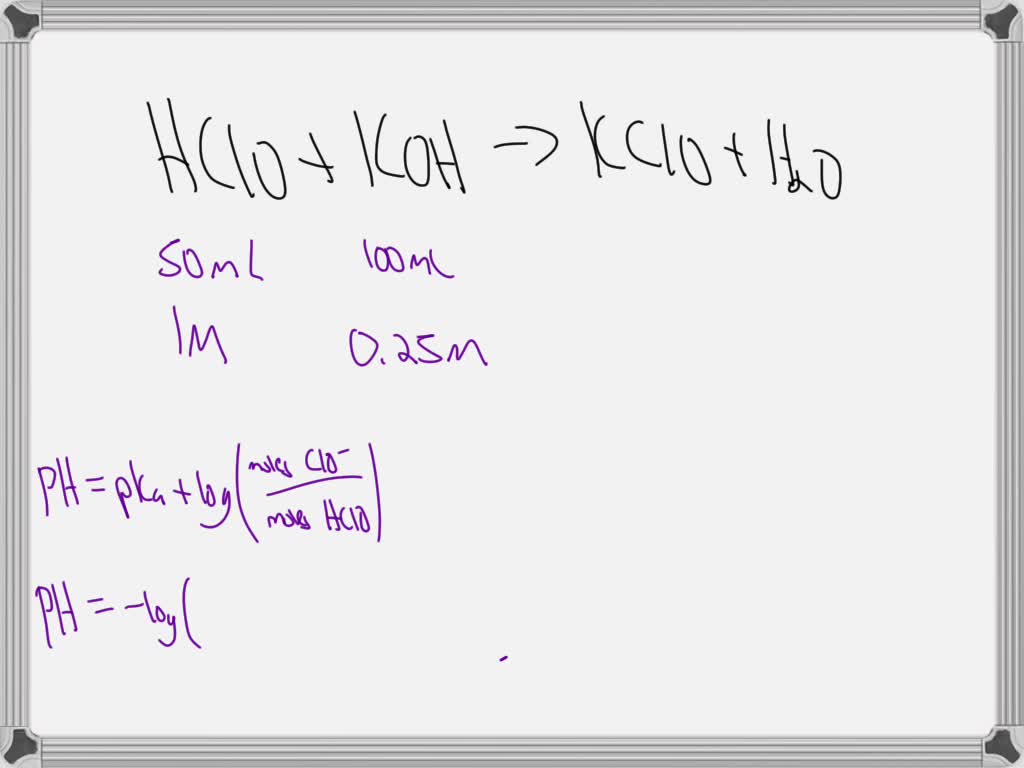 HClO + KOH → KClO + H₂O
50mL 100mL
1M 0.25M
PH = pKa + log(moles ClO⁻ / moles HClO)
PH = -log(